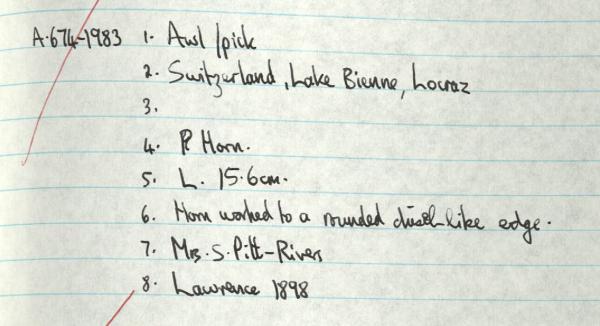 A.674-1983 1. Awl/pick
2. Switzerland, Lake Bienne, Locraz
3.
4. ? Horn.
5. L. 15.6cm.
6. Horn worked to a rounded chisel-like edge.
7. Mrs. S. Pitt-Rivers
8. Lawrence 1898